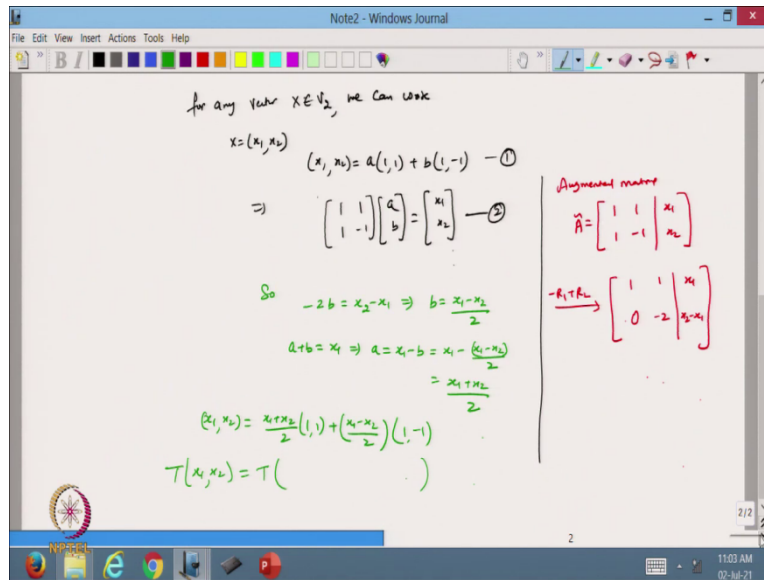 Note2 - Windows Journal
File Edit View Insert Actions Tools Help
for any vector X ∈ V₂, we can
X = (x₁, x₂)
(x₁, x₂) = a(1, 1) + b(1, -1) — ①
⇒ [1 1; 1 -1] [a; b] = [x₁; x₂] — ②
So
-2b = x₂ - x₁ ⇒ b = (x₁ - x₂)/2
a + b = x₁ ⇒ a = x₁ - b = x₁ - (x₁ - x₂)/2
= (x₁ + x₂)/2
(x₁, x₂) = (x₁ + x₂)/2 (1, 1) + ((x₁ - x₂)/2) (1, -1)
T(x₁, x₂) = T( )
Augmented matrix
Ã = [1 1 | x₁; 1 -1 | x₂]
-R₁+R₂ → [1 1 | x₁; 0 -2 | x₂-x₁]
NPTEL
2/2
2
11:03 AM
02-Jul-21